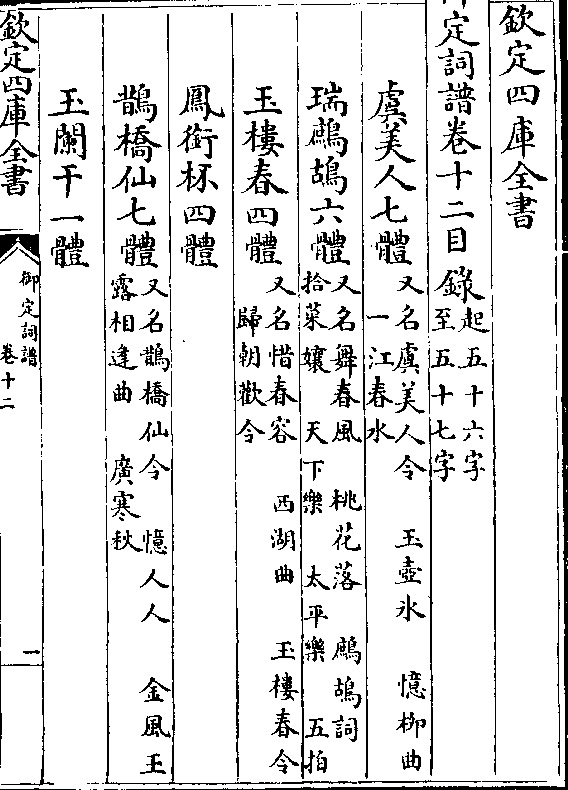 欽定四庫全書
御定詞譜卷十二目錄起五十六字
至五十七字
虞美人七體又名虞美人令 玉壺冰 憶柳曲
一江春水
瑞鷓鴣六體又名舞春風 桃花落 鷓鴣詞
拾菜孃 天下樂 太平樂 五拍
玉樓春四體又名惜春容 西湖曲 玉樓春令
歸朝歡令
鳳銜杯四體
鵲橋仙七體又名鵲橋仙令 憶人人 金風玉
露相逢曲 廣寒秋
玉闌干一體
欽定四庫全書
御定詞譜
卷十二
一